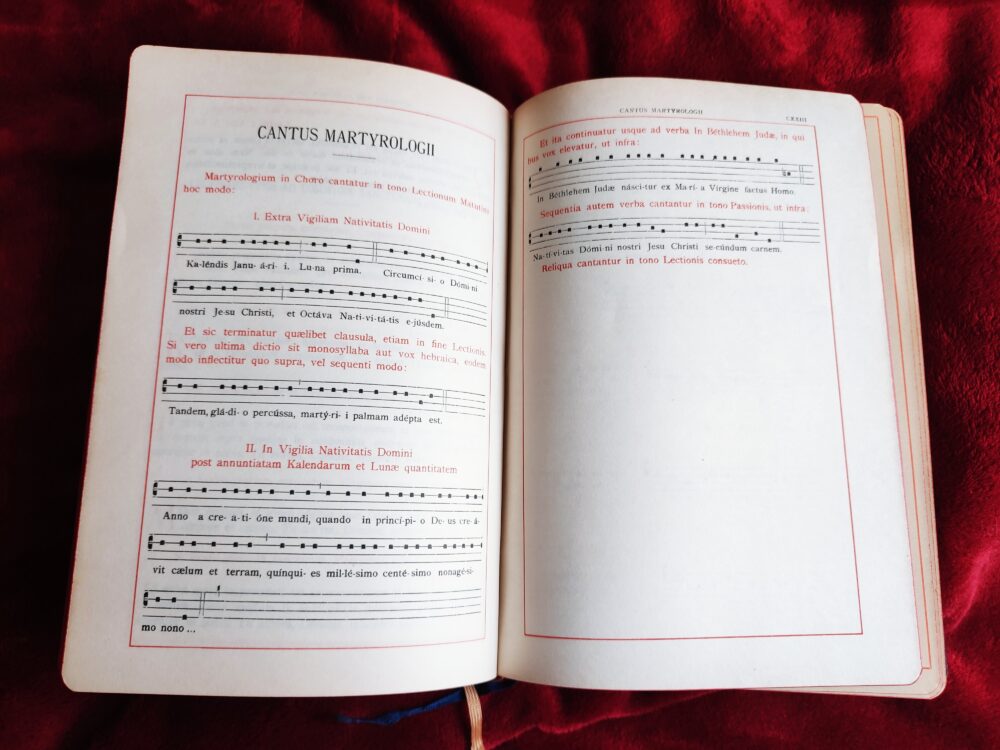 CANTUS MARTYROLOGII
Martyrologium in Choro cantatur in tono Lectionum Matutini
hoc modo:
I. Extra Vigiliam Nativitatis Domini
Ka-léndis Janu- á-ri- i. Lu-na prima. Circumcí- si- o Dómi ni
nostri Je-su Christi, et Octáva Na-ti-vi-tá-tis e-júsdem.
Et sic terminatur quælibet clausula, etiam in fine Lectionis.
Si vero ultima dictio sit monosyllaba aut vox hebraica, eodem
modo inflectitur quo supra, vel sequenti modo:
Tandem, glá-di- o percússa, martý-ri- i palmam adépta est.
II. In Vigilia Nativitatis Domini
post annuntiatam Kalendarum et Lunæ quantitatem
Anno a cre- a-ti- óne mundi, quando in princí-pi- o De- us cre-á-
vit cælum et terram, quínqui- es mil-lé-simo centé- simo nonagé-si-
mo nono ...
CANTUS MARTYROLOGII
CXXIII
Et ita continuatur usque ad verba In Béthlehem Judæ, in qui
bus vox elevatur, ut infra:
In Béthlehem Judæ násci-tur ex Ma-rí- a Vírgine factus Homo.
Sequentia autem verba cantantur in tono Passionis, ut infra:
Na-tí-vi-tas Dómi-ni nostri Jesu Christi se-cúndum carnem.
Reliqua cantantur in tono Lectionis consueto.